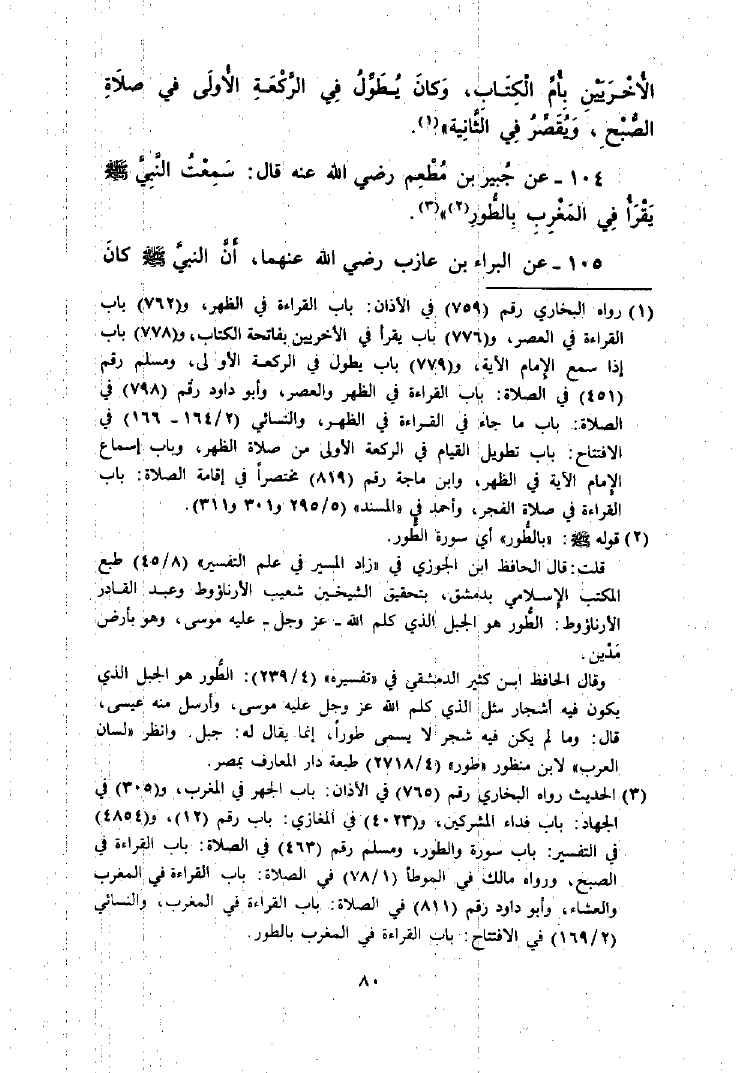 الأُخْرَيَيْنِ بِأُمِّ الْكِتَابِ، وَكانَ يُطَوِّلُ فِي الرَّكْعَةِ الأُولَى في صلَاةِ
الصُّبْحِ، وَيُقَصِّرُ فِي الثَّانِية»(١).
١٠٤ - عن جُبير بن مُطْعِم رضي الله عنه قال: سَمِعْتُ النَّبِيَّ ﷺ
يَقْرَأُ فِي المَغْرِبِ بِالطُّورِ(٢)»(٣).
١٠٥ - عن البراء بن عازب رضي الله عنهما، أَنَّ النبيَّ ﷺ كانَ
(١) رواه البخاري رقم (٧٥٩) في الأذان: باب القراءة في الظهر، و(٧٦٢) باب
القراءة في العصر، و(٧٧٦) باب يقرأ في الأخريين بفاتحة الكتاب، و(٧٧٨) باب
إذا سمع الإمام الآية، و(٧٧٩) باب يطول في الركعة الأولى، ومسلم رقم
(٤٥١) في الصلاة: باب القراءة في الظهر والعصر، وأبو داود رقم (٧٩٨) في
الصلاة: باب ما جاء في القراءة في الظهر، والنسائي (١٦٤/٢ - ١٦٦) في
الافتتاح: باب تطويل القيام في الركعة الأولى من صلاة الظهر، وباب إسماع
الإمام الآية في الظهر، وابن ماجة رقم (٨١٩) مختصراً في إقامة الصلاة: باب
القراءة في صلاة الفجر، وأحمد في «المسند» (٢٩٥/٥ و٣٠١ و٣١١).
(٢) قوله ﷺ: «بالطُّور» أي سورة الطُّور.
قلت: قال الحافظ ابن الجوزي في «زاد المسير في علم التفسير» (٤٥/٨) طبع
المكتب الإسلامي بدمشق، بتحقيق الشيخين شعيب الأرناؤوط وعبد القادر
الأرناؤوط: الطُّور هو الجبل الذي كلم الله - عز وجل - عليه موسى، وهو بأرض
مَدْين.
وقال الحافظ ابن كثير الدمشقي في «تفسيره» (٢٣٩/٤): الطُّور هو الجبل الذي
يكون فيه أشجار مثل الذي كلم الله عز وجل عليه موسى، وأرسل منه عيسى،
قال: وما لم يكن فيه شجر لا يسمى طوراً، إنما يقال له: جبل. وانظر «لسان
العرب» لابن منظور «طور» (٢٧١٨/٤) طبعة دار المعارف بمصر.
(٣) الحديث رواه البخاري رقم (٧٦٥) في الأذان: باب الجهر في المغرب، و(٣٠٥) في
الجهاد: باب فداء المشركين، و(٤٠٢٣) في المغازي: باب رقم (١٢)، و(٤٨٥٤)
في التفسير: باب سورة والطور، ومسلم رقم (٤٦٣) في الصلاة: باب القراءة في
الصبح، ورواه مالك في الموطأ (٧٨/١) في الصلاة: باب القراءة في المغرب
والعشاء، وأبو داود رقم (٨١١) في الصلاة: باب القراءة في المغرب، والنسائي
(١٦٩/٢) في الافتتاح: باب القراءة في المغرب بالطور.
٨٠